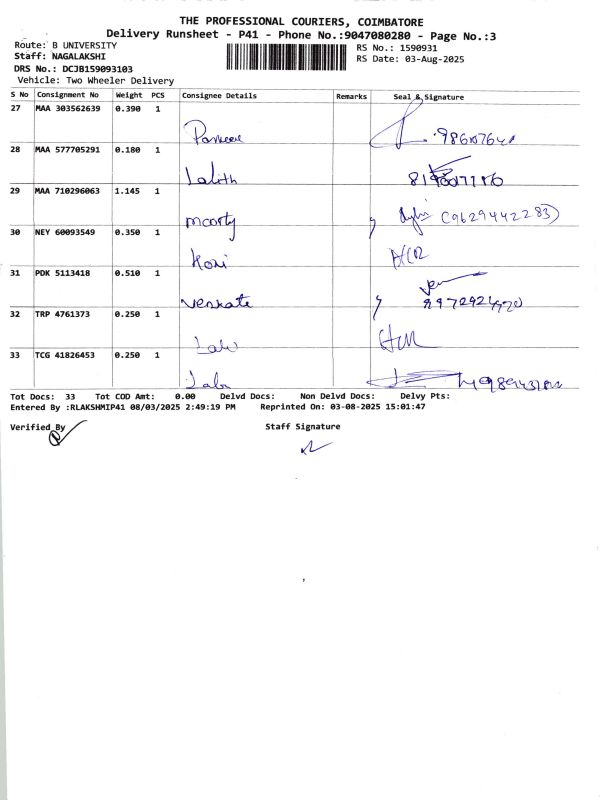 THE PROFESSIONAL COURIERS, COIMBATORE
Delivery Runsheet - P41 - Phone No.:9047080280 - Page No.:3
Route: B UNIVERSITY
RS No.: 1590931
Staff: NAGALAKSHI
RS Date: 03-Aug-2025
DRS No.: DCJB159093103
Vehicle: Two Wheeler Delivery
S No Consignment No Weight PCS Consignee Details Remarks Seal & Signature
27 MAA 303562639 0.390 1
28 MAA 577705291 0.180 1
Lalith
29 MAA 710296063 1.145 1
moorty (9629442283)
30 NEY 60093549 0.350 1
31 PDK 5113418 0.510 1
Venkate
32 TRP 4761373 0.250 1
33 TCG 41826453 0.250 1
Tot Docs: 33 Tot COD Amt: 0.00 Delvd Docs: Non Delvd Docs: Delvy Pts:
Entered By :RLAKSHMIP41 08/03/2025 2:49:19 PM Reprinted On: 03-08-2025 15:01:47
Verified By Staff Signature